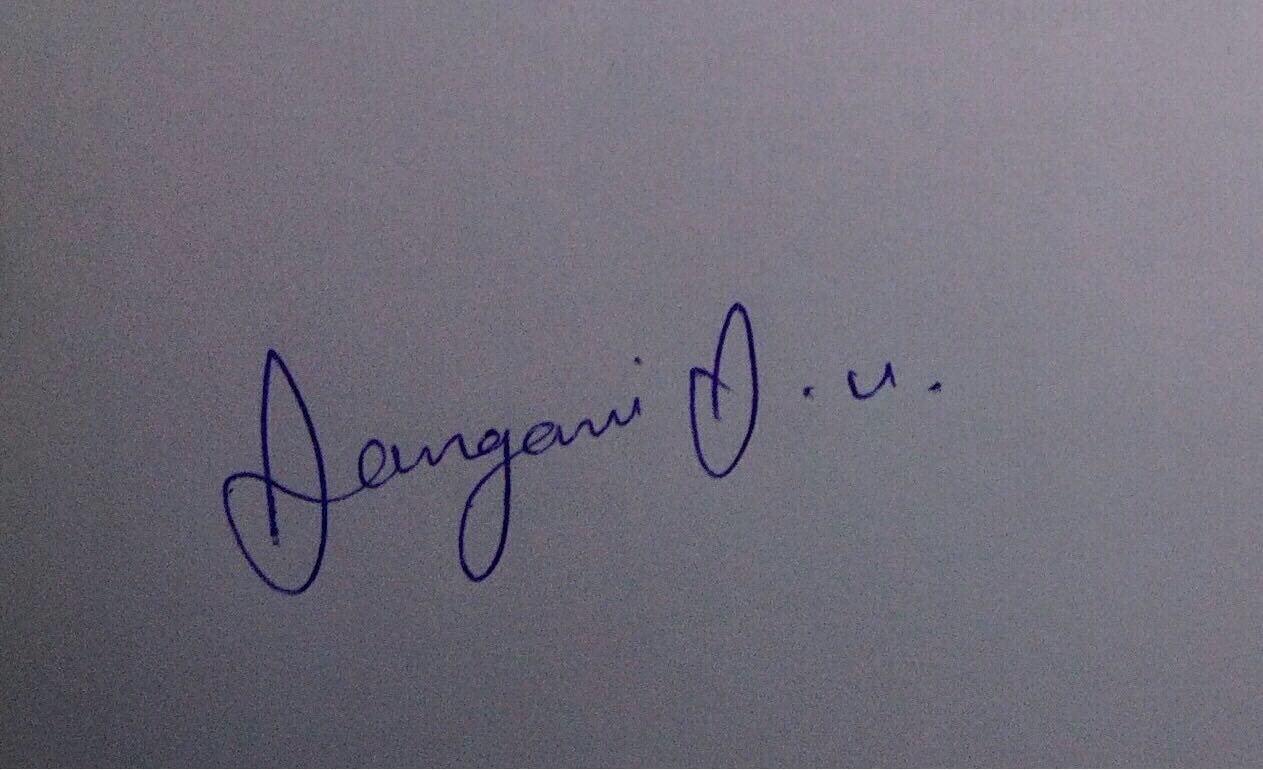 Dangani D.U.